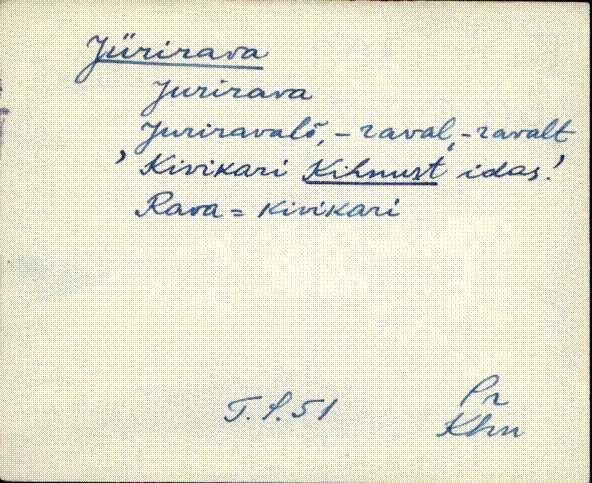 Jürirava
Jurirava
Juriravalõ, -raval, -ravalt
' Kivikari Kihnust idas!
Rava = kivikari
T. S. 51
Pr
Khn